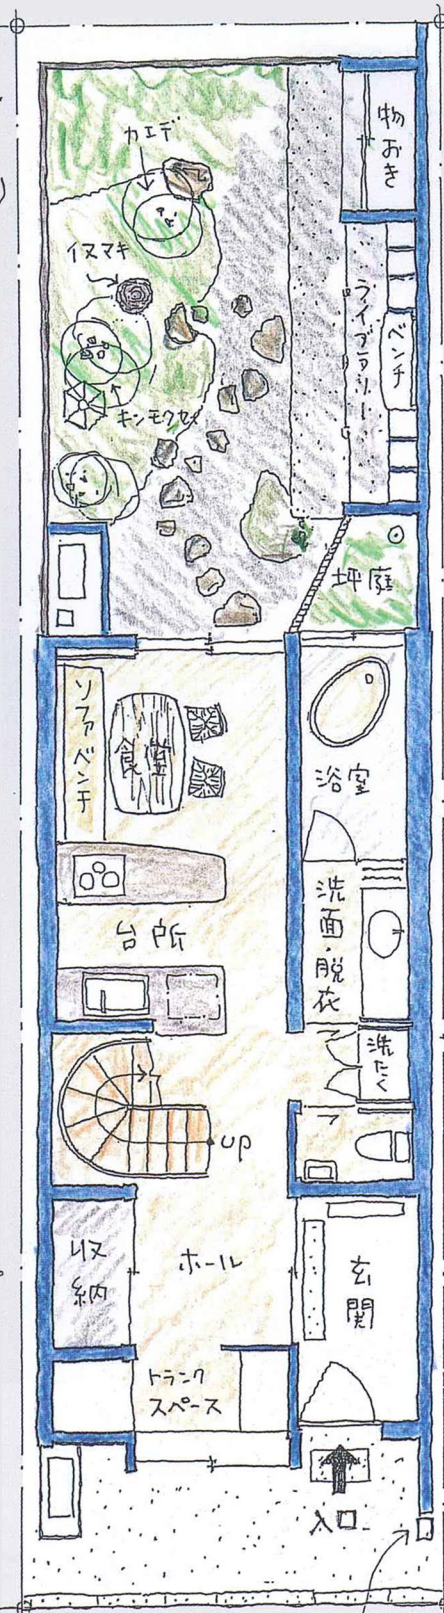 物おき
カエデ
イヌマキ
ライブラリー
ベンチ
キンモクセイ
坪庭
ソファベンチ
食堂
浴室
台所
洗面・脱衣
洗たく
UP
収納
ホール
玄関
トランク
スペース
入口